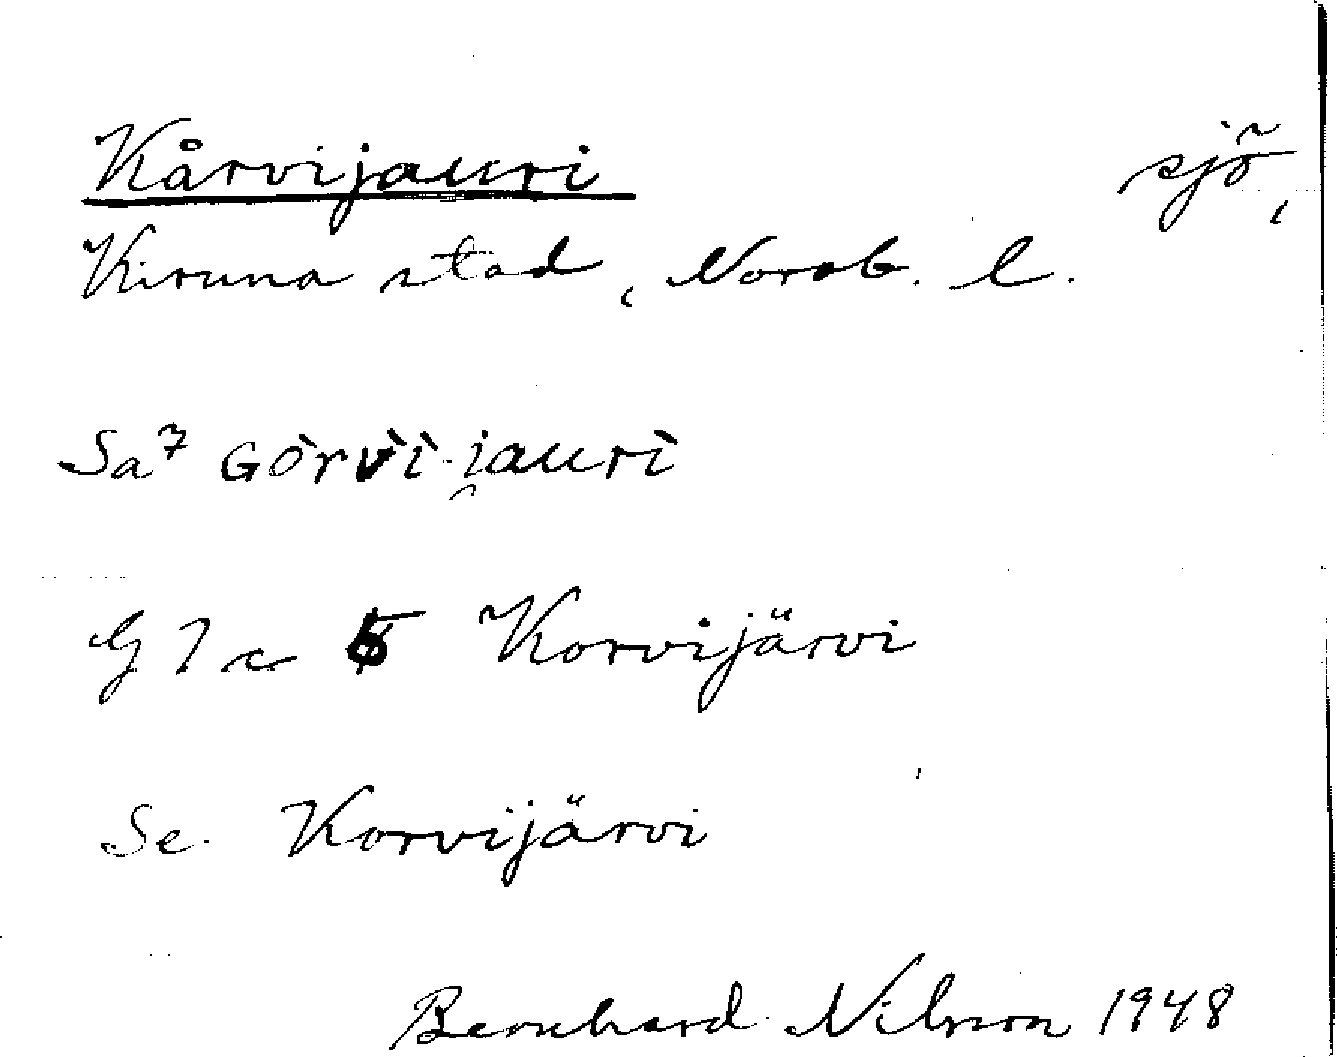 Kårvijauri sjö,
Kiruna stad, Norrb. l.
Sa7 GÒrv̀ì-i̯aurì
G 7 c 5 Korvijärvi
Se. Korvijärvi
Bernhard Nilsson 1948